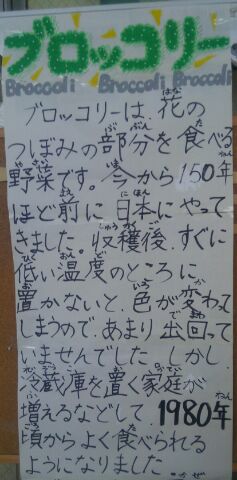 ブロッコリー
Broccoli Broccoli Broccoli
ブロッコリーは、花の
つぼみの部分を食べる
野菜です。今から150年
ほど前に日本にやって
きました。収穫後、すぐに
低い温度のところに
置かないと、色が変わって
しまうので、あまり出回って
いませんでした。しかし、
冷蔵庫を置く家庭が
増えるなどして、1980年
頃からよく食べられる
ようになりました。